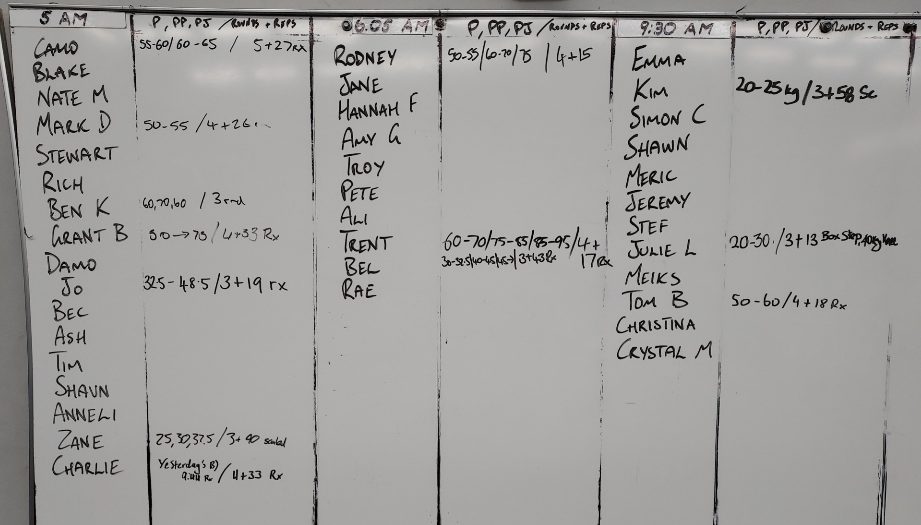 5 AM P, PP, PJ /ROUNDS + REPS
CAMO 55-60/60-65 / 5+27rx
BLAKE
NATE M
MARK D 50-55 /4+26
STEWART
RICH
BEN K 60,70,60 / 3 rnd
GRANT B 50→75 / 4+33 Rx
DAMO
JO 32.5-48.5/3+19 rx
BEC
ASH
TIM
SHAUN
ANNELI
ZANE 25,30,37.5/3+90 scaled
CHARLIE Yesterday's B)
9:44 Rx / 4+33 Rx
06.05 AM P, PP, PJ /ROUNDS + REPS
RODNEY 50-55/60-70/75 / 4+15
JANE
HANNAH F
AMY G
TROY
PETE
ALI
TRENT 60-70/75-85/85-95/4+
17 Rx
BEL 30-32.5/40-45/45→/3+43Rx
RAE
9:30 AM P, PP, PJ/ROUNDS + REPS
EMMA
KIM 20-25kg/3+58 Sc
SIMON C
SHAWN
MERIC
JEREMY
STEF
JULIE L 20-30./3+13 Box Step, 40kg
MEIKS
TOM B 50-60/4+18 Rx
CHRISTINA
CRYSTAL M